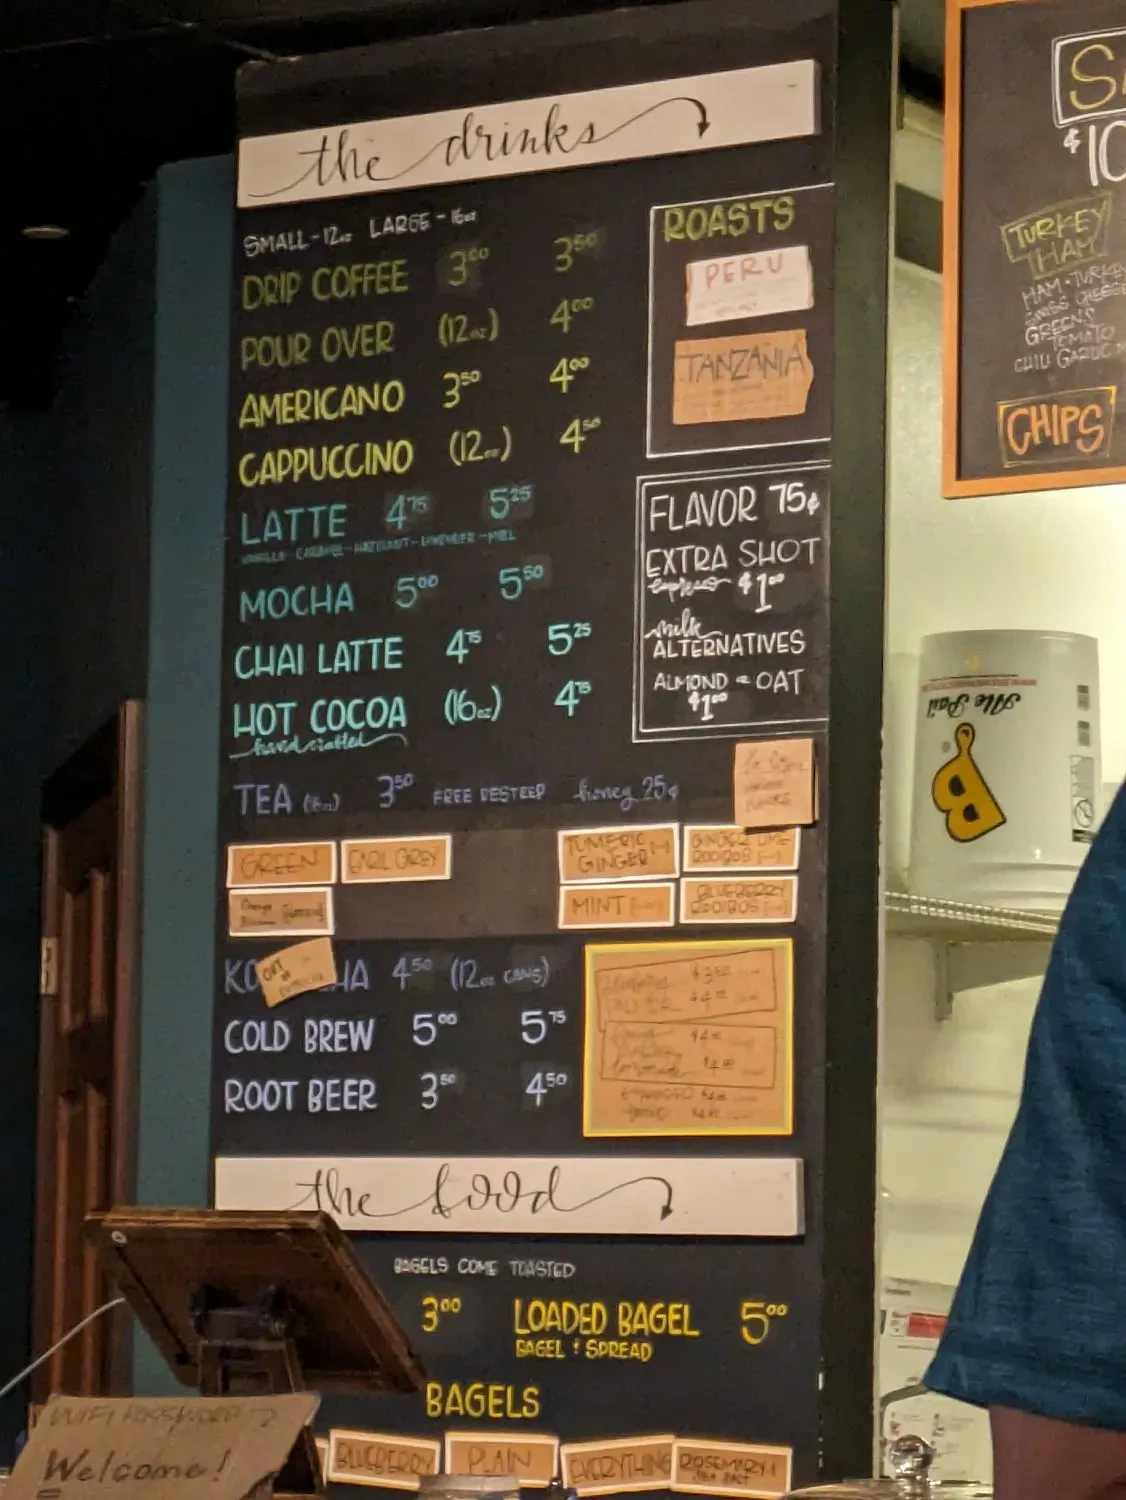 the drinks
SMALL-12oz LARGE-16oz
DRIP COFFEE 3⁰⁰ 3⁵⁰
POUR OVER (12oz) 4⁰⁰
AMERICANO 3⁵⁰ 4⁰⁰
CAPPUCCINO (12oz) 4⁵⁰
LATTE 4⁷⁵ 5²⁵
VANILLA - CARAMEL - HAZELNUT - LAVENDER - MIEL
MOCHA 5⁰⁰ 5⁵⁰
CHAI LATTE 4⁷⁵ 5²⁵
HOT COCOA (16oz) 4⁷⁵
hand crafted
TEA (16oz) 3⁵⁰ FREE RESTEEP honey 25¢
GREEN
EARL GREY
TUMERIC
GINGER
GINGER LIME
ROOIBOS
MINT
BLUEBERRY
ROOIBOS
OUT
OF
KO HA 4⁵⁰ (12oz CANS)
COLD BREW 5⁰⁰ 5⁷⁵
ROOT BEER 3⁵⁰ 4⁵⁰
ROASTS
PERU
TANZANIA
FLAVOR 75¢
EXTRA SHOT
espresso $1⁰⁰
milk
ALTERNATIVES
ALMOND OAT
$1⁰⁰
the food
BAGELS COME TOASTED
3⁰⁰ LOADED BAGEL 5⁰⁰
BAGEL & SPREAD
BAGELS
BLUEBERRY
PLAIN
EVERYTHING
ROSEMARY &
SEA SALT
WIFI PASSWORD?
Welcome!
$10
TURKEY
HAM
HAM - TURKEY
SWISS CHEESE
GREENS
TOMATO
CHILI GARLIC
CHIPS
Ale Pail
B